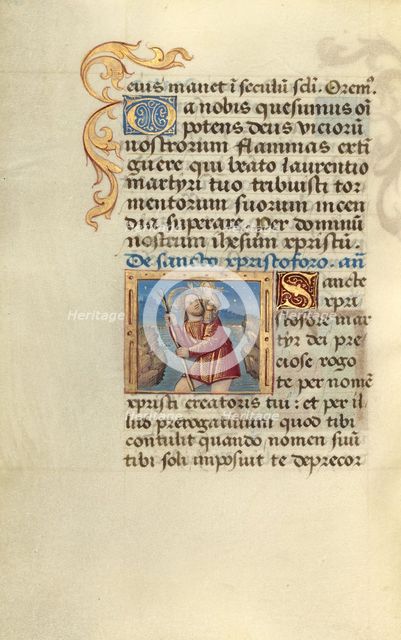 eius manet ī seculū sćli. Orem⁹.
Da nobis quesumus om̄
potens deus viciorū
nostrorum flammas exti
guere qui beato laurentio
martyri tuo tribuisti tor
mentorum suorum incen
dia superare. Per dominū
nostrum ihesum xpristū.
De sancto xpristoforo. añ
Sancte
xpri
stofore mar
tyr dei pre
ciose rogo
te per nomē
xpristi creatoris tui: et per il
lud prerogatiuum quod tibi
contulit quando nomen suū
tibi soli imposuit te deprecor
heritage images
Heritage
Heritage
Heritage
Heritage